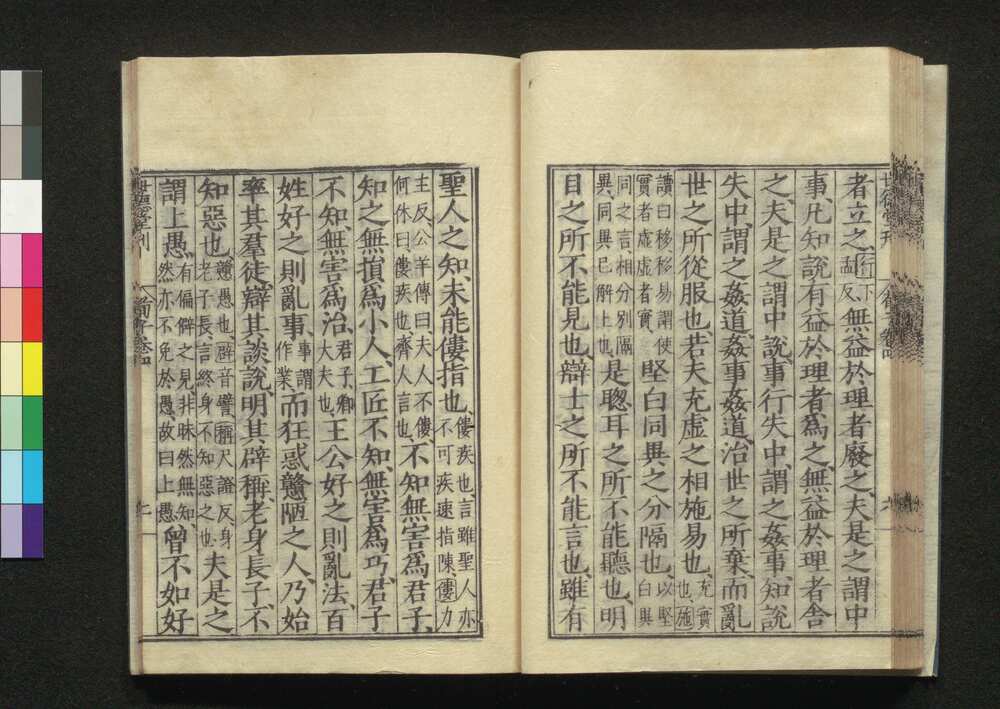 者立之行下孟反無益於理者廢之夫是之謂中
事凡知說有益於理者爲之無益於理者舍
之夫是之謂中說事行失中謂之姦事知說
失中謂之姦道姦事姦道治世之所棄而亂
世之所從服也若夫充虛之相施易也充實也施
讀曰移移易謂使實者虛虛者實堅白同異之分隔也以堅白與
同之言相分別隔異同異已解上也是聰耳之所不能聽也明
目之所不能見也辯士之所不能言也雖有
聖人之知未能僂指也僂疾也言雖聖人亦不可疾速指陳僂力
主反公羊傳曰夫人不僂何休曰僂疾也齊人言也不知無害爲君子
知之無損爲小人工匠不知無害爲巧君子
不知無害爲治君子卿大夫也王公好之則亂法百
姓好之則亂事事謂作業而狂惑戇陋之人乃始
率其羣徒辯其談說明其辟稱老身長子不
知惡也戇愚也辟音譬稱尺證反身老子長言終身不知惡之也夫是之
謂上愚有偏僻之見非昧然無知然亦不免於愚故曰上愚曾不如好